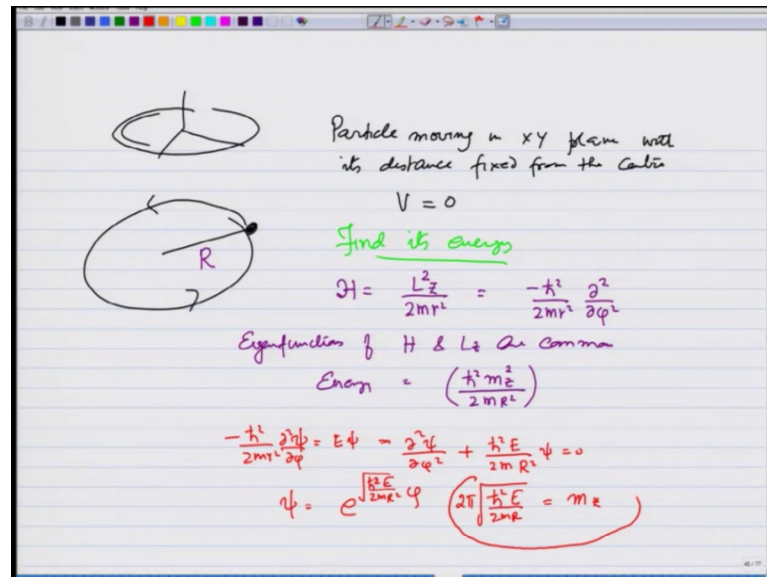 Particle moving in XY plane with
its distance fixed from the Centre
V = 0
Find its energy
R
H = L²z / 2mr² = -ħ² / 2mr² ∂² / ∂φ²
Eigenfunctions of H & Lz are common
Energy = (ħ² m²z / 2mR²)
-ħ² / 2mr² ∂²ψ / ∂φ² = Eψ - ∂²ψ / ∂φ² + ħ²E / 2mR² ψ = 0
ψ = e^(√(ħ²E / 2mR²) φ) (2π √(ħ²E / 2mR) = mz